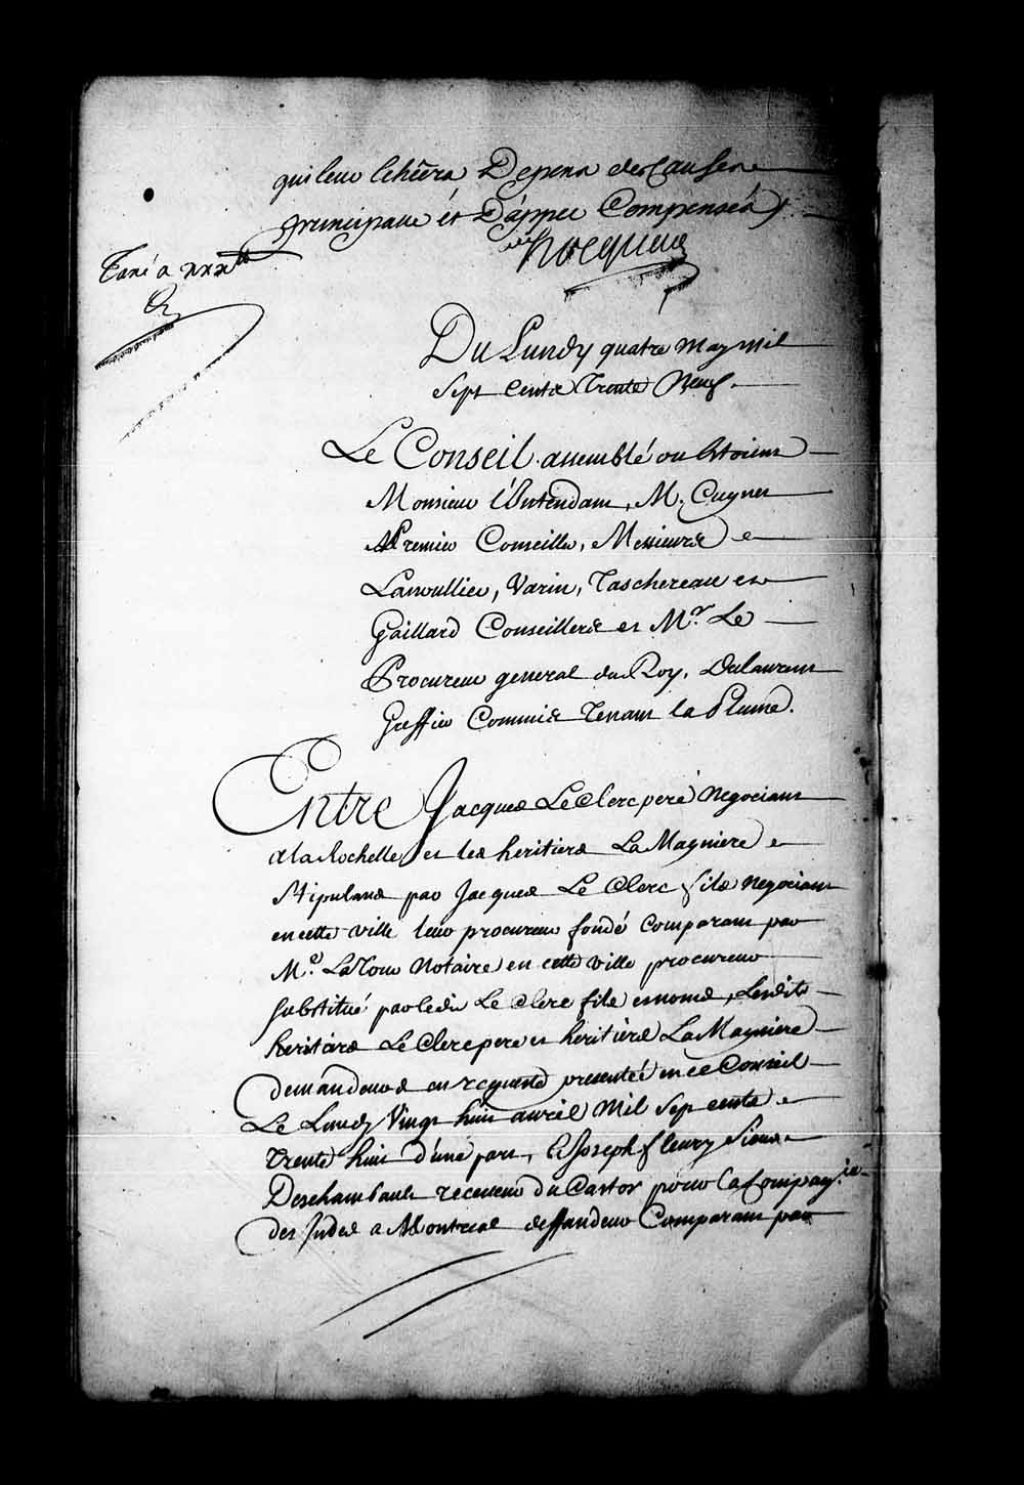 qui leur echera Depens des Causes
principalle et D'appel Compensés
hocquart
Taxé a xxx lt
Du Lundy quatre may mil
sept Cents Trente Neuf.
Le Conseil assemblé ou Etoient
Monsieur l'Intendant, M. Cugnet
Premier Conseiller, Messieurs
Lanoullier, Varin, Taschereau et
Gaillard Conseillers et Mr. Le
Procureur general du Roy, Dulaurent
Greffier Commis Tenant la Plume.
Entre Jacques LeClerc pere Negociant
a la Rochelle, et les heritiers La Magniere
stipulans par Jacques Le Clerc fils negociant
en cette ville leur procureur fondé Comparant par
Me. LaTour Notaire en cette ville procureur
substitué par ledit Le Clerc fils esnoms, Lesdits
heritiers Le Clerc pere et heritiers La Magniere
demandeurs en requeste presentée en ce Conseil
Le Lundy Vingt huit avril Mil Sept cents
trente huit d'une part, Et Joseph fleury Sieur
Deschambault receveur du Castor pour la Compag.ie
des Indes a Montreal deffendeur Comparant par